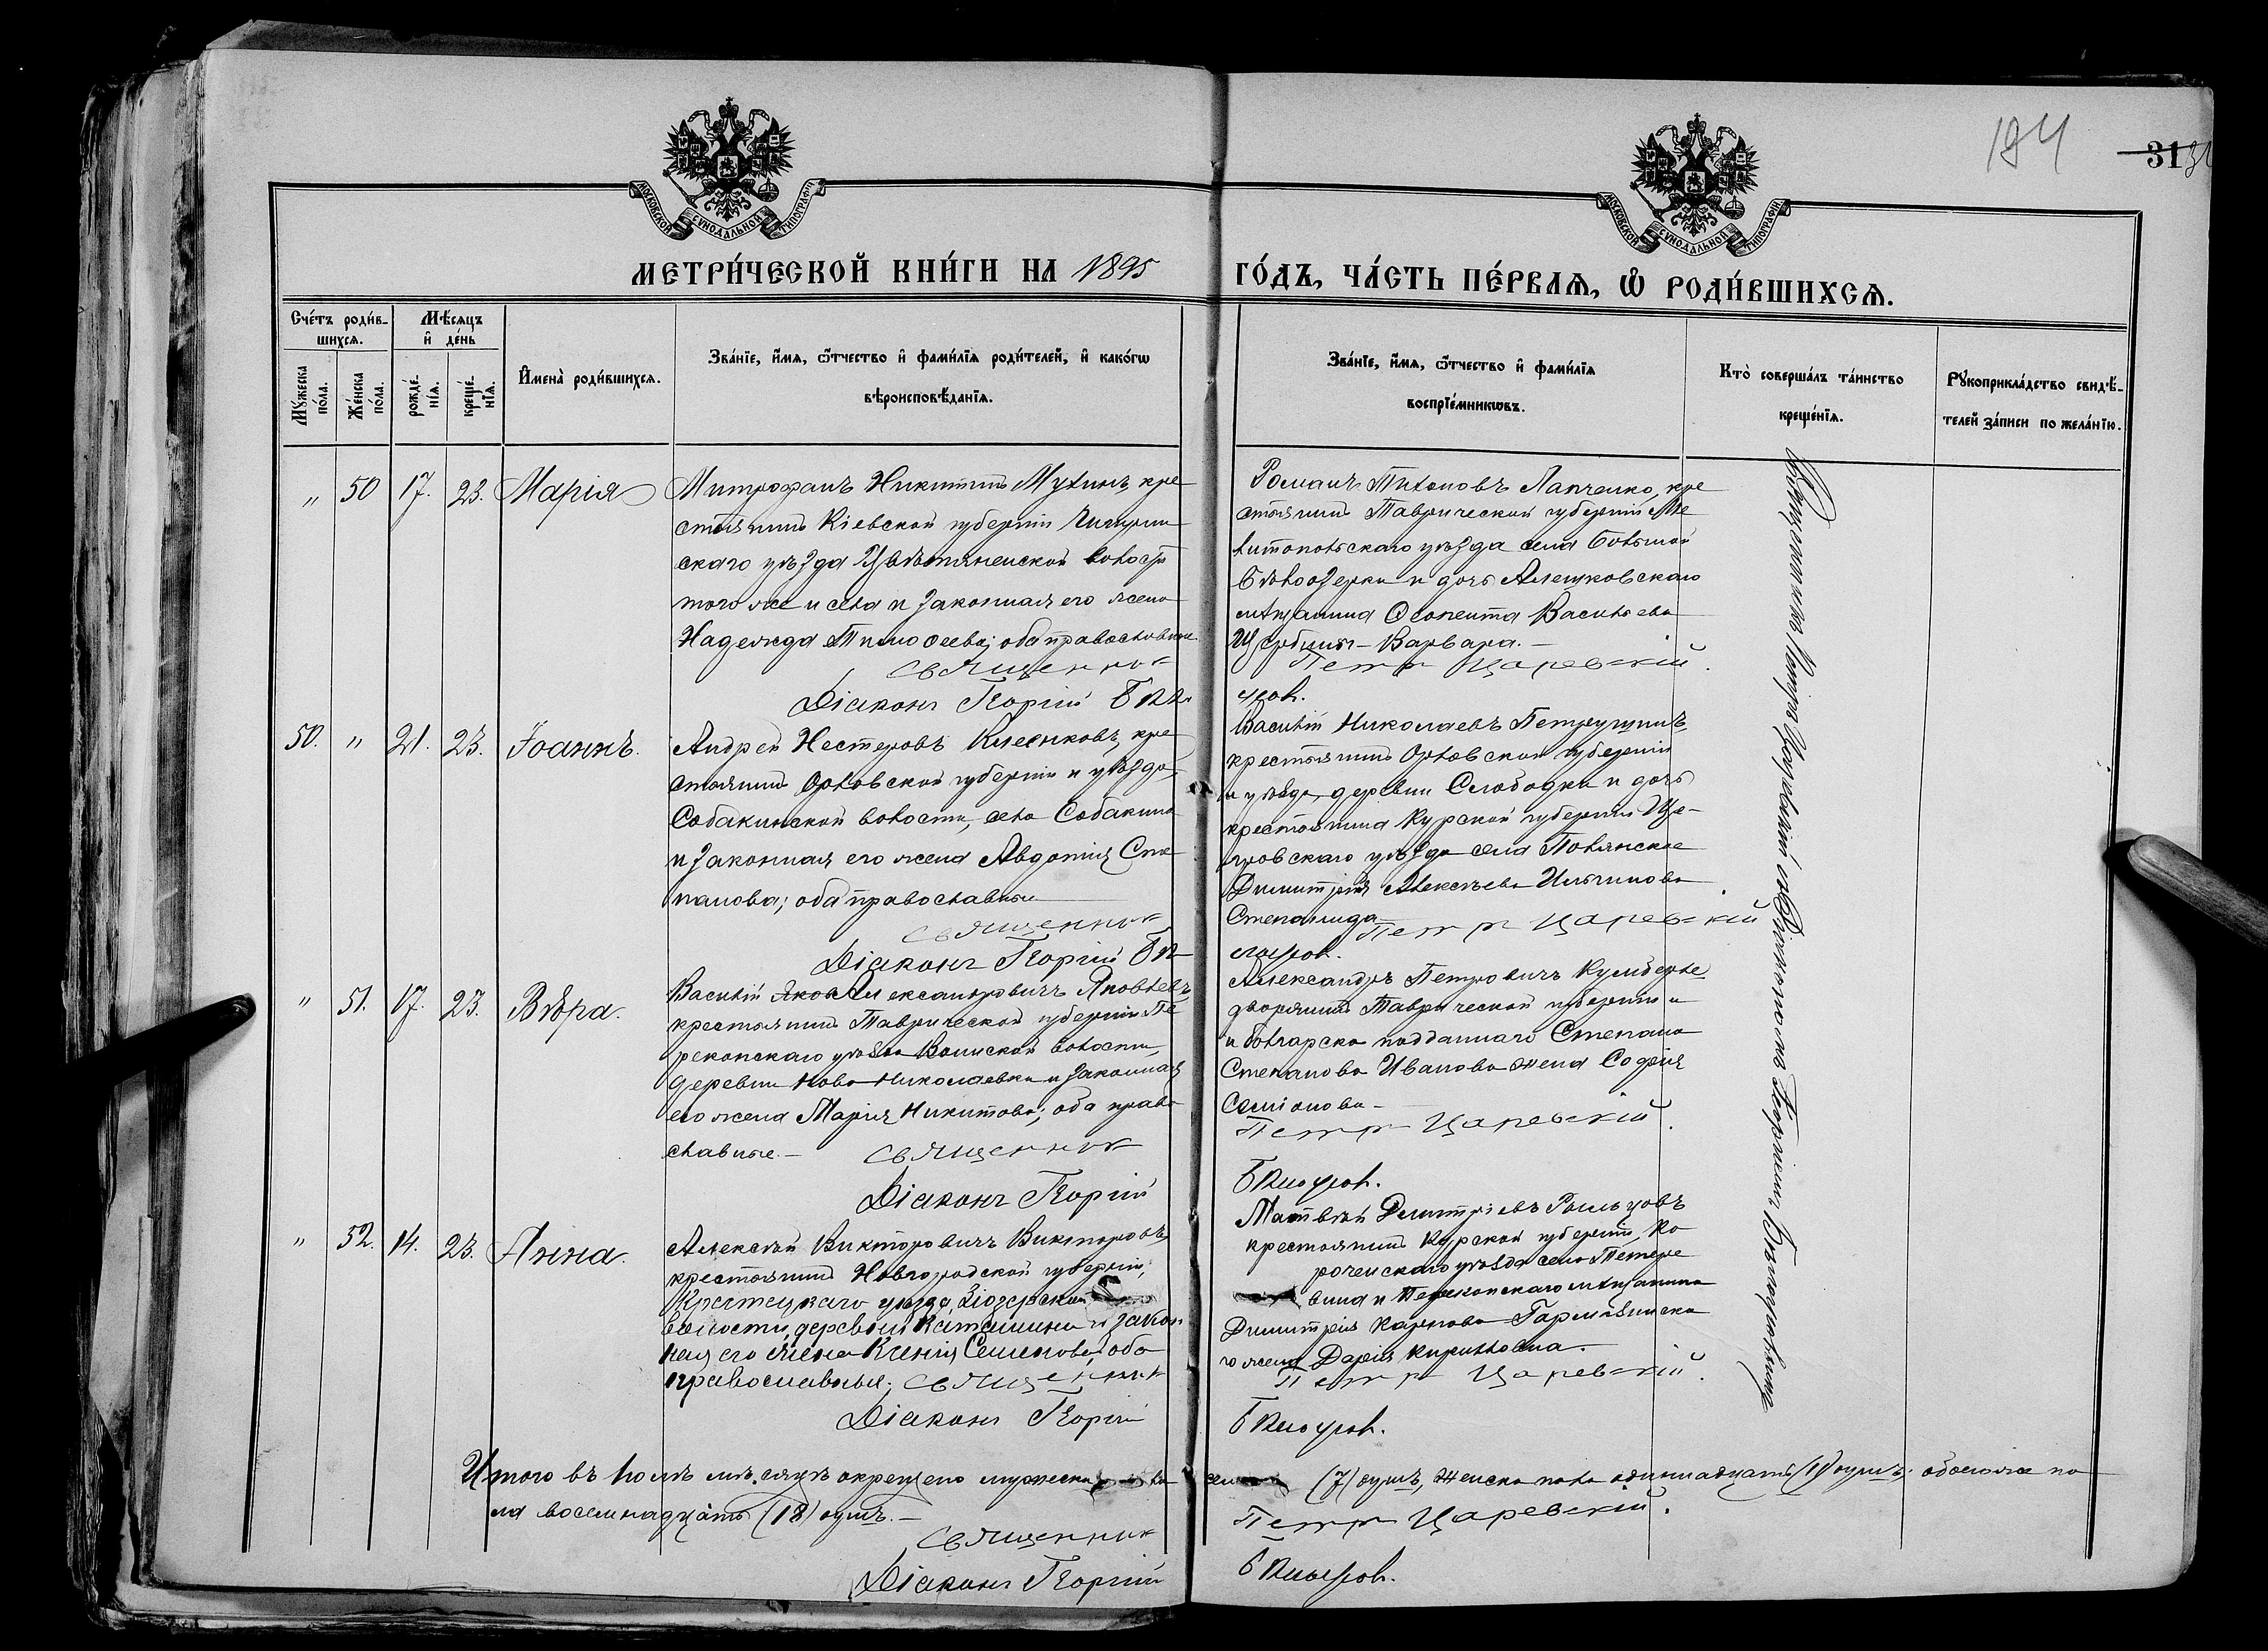 184
31
МОСКОВСКОЙ СѴНОДАЛЬНОЙ ТИПОГРАФІИ
МОСКОВСКОЙ СѴНОДАЛЬНОЙ ТИПОГРАФІИ
МЕТРИ́ЧЕСКОЙ КНИ́ГИ НА 1895 ГО́ДЪ, ЧА́СТЬ ПЕ́РВАѦ, Ѡ҆ РОДИ́ВШИХСѦ.
Сче́тъ роди́в-
шихсѧ.
Мѣсѧцъ
и҆ де́нь
Мꙋ́жеска
по́ла.
Же́нска
по́ла.
рожде́-
нїѧ.
креще́-
нїѧ.
И҆мена̀ роди́вшихсѧ.
Зва́нїе, и҆́мѧ, ѻ҆́тчество и҆ фами́лїѧ роди́телей, и҆ како́гѡ
вѣроисповѣ́данїѧ.
Зва́нїе, и҆́мѧ, ѻ҆́тчество и҆ фами́лїѧ
воспрїе́мникѡвъ.
Кто̀ соверша́лъ та́инство
креще́нїѧ.
Рꙋкоприкла́дство свидѣ́-
телей за́писи по жела́нїю.
„ 50 17. 23. Марія
Митрофанъ Никитинъ Мухинъ, кре
стьянинъ Кіевской губерніи Чигирин
скаго уѣзда Цвѣтянской волости
того же и села и законная его жена
Надежда Тимофеева; оба православные
Священник
Діаконъ Георгій
Романъ Тихоновъ Лапченко, кре
стьянинъ Таврической губерніи Ме
литопольскаго уѣзда села Большой
Бѣлозерки и дочь Алешковскаго
мѣщанина Ѳеопента Васильева
Щербины – Варвара. –
Петр Царевскій.
50. „ 21. 23. Іоаннъ.
Андрей Нестеровъ Клесиковъ, кре
стьянинъ Орловской губерніи и уѣзда,
Собакинской волости, села Собакина
и законная его жена Авдотія Сте
панова; оба православные
Священник
Діаконъ Георгій
Василій Николаевъ Петрушинъ
крестьянинъ Орловской губерніи
и уѣзда, деревни Слободки и дочь
крестьянина Курской губерніи Щи-
гровскаго уѣзда села Полянское
Димитрія Алексѣева Ильинова
Степанида
Петр Царевскій
„ 51. 17. 23. Вѣра.
Василій Яков Александровичъ Яковлевъ
крестьянинъ Таврической губерніи Пе
рекопскаго уѣзда Воинской волости,
деревни Ново Николаевки и законная
его жена Марія Никитова; оба право
славные. – Священник
Діаконъ Георгій
Александръ Петровичъ
дворянинъ Таврической губерніи и
и болгарско подданнаго Степана
Степанова Иванова жена Софія
Семіонова –
Петр Царевскій.
„ 52. 14. 23. Анна.
Алексѣй Викторовичъ Викторовъ,
крестьянинъ Новгородской губерніи,
Крестецкаго уѣзда, Заозерской
волости, деревни и закон
ная его жена Ксенія Семенова, оба
православныя; Священник
Діаконъ Георгій
Матвѣй Димитріевъ Рыльцовъ
крестьянинъ Курской губерніи, Ко
роченскаго уѣзда села Тетере
вина и Перекопскаго мѣщанина
Димитрія Карпова
го жена Дарія Кирилловна. –
Петр Царевскій.
Священникъ Петръ Царевскій съ Діакономъ Георгіемъ
Итого въ Іюлѣ мѣсяцѣ окрещено мужеска (7) душъ, Женска пола одиннадцать (11) душъ; обоего же по
ла восемнадцать (18) душъ. –
Священник Петр Царевскій.
Діаконъ Георгій